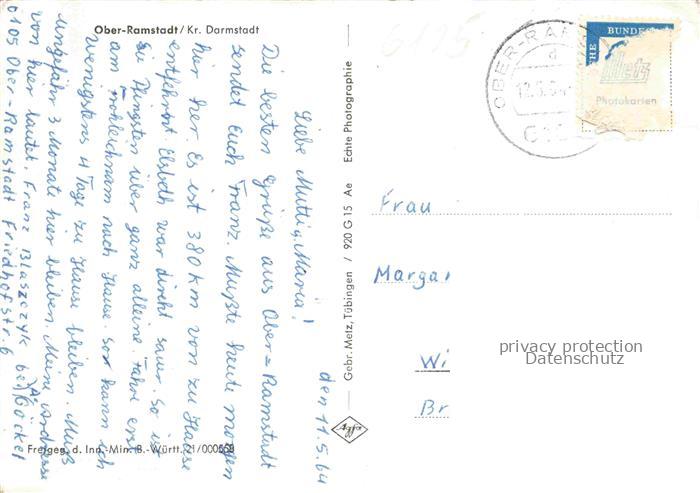 Ober-Ramstadt/ Kr. Darmstadt
den 11.5.64
Liebe Mutti u. Maria!
Die besten Grüße aus Ober=Ramstadt
sendet Euch Franz. Mußte heute morgen
hier her. Es ist 380 km von zu Hause
entfehrnt. Elsbeth war direkt sauer. So ist
sie Pfingsten über ganz alleine. Fahre erst
am Frohleichnam nach Hause. Da kann ich
wenigstens 4 Tage zu Hause bleiben. Muß
ungefähr 3 Monate hier bleiben. Meine Adresse
von hier lautet, Franz Blaszczyk bei A. Göckel
6105 Ober-Ramstadt Friedhofstr. 6
Freigeg. d. Inn.-Min. B.-Württ.
Gebr. Metz, Tübingen / 920 G 15 Ae Echte Photographie
Agfa
6125
OBER-RAM
d
BUNDES
HE
Metz
Photokarten
Frau
Margar
Wi
Br
privacy protection
Datenschutz